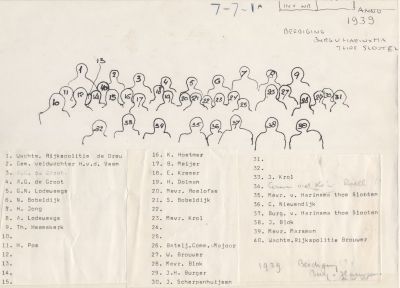 7-7-1A
INV NR
ANNO
1939
BEEDIGING
BURG V HARINXMA
THOE SLOOTEN
1 13 2 3 4 5 6 7 8 9
10 11 12 16 17 18 19 20 21 22 23 24 25 26 27 28 29 30 31
32 33 34 35 36 37 38 39 40
1. Wachtm. Rijkspolitie de Drau
2. Gem. veldwachter H.v.d. Veen
3. A.G. de Groot
4. A.G. de Groot
5. G.N. Lodewegs
6. W. Bobeldijk
7. H. Jong
8. A. Lodewegs
9. Th. Heemskerk
10.
11. H. Pos
12.
13.
14.
15.
16. K. Hoetmer
17. B. Meijer
18. C. Kramer
19. H. Dolman
20. Mevr. Roelofse
21. S. Bobeldijk
22.
23. Mevr. Krol
24.
25.
26. Batalj.Comm.-Majoor
27. W. Brouwer
28. Mevr. Blok
29. J.H. Burger
30. J. Scherpenhuijsen
31.
32.
33. J. Krol
34.
35. Mevr. v. Harinxma thoe Slooten
36. C. Nieuwendijk
37. Burg. v. Harinxma thoe Slooten
38. J. Blok
39. Mevr. Marsman
40. Wachtm.Rijkspolitie Brouwer
1939 Beediging
Burg. v Harinxma